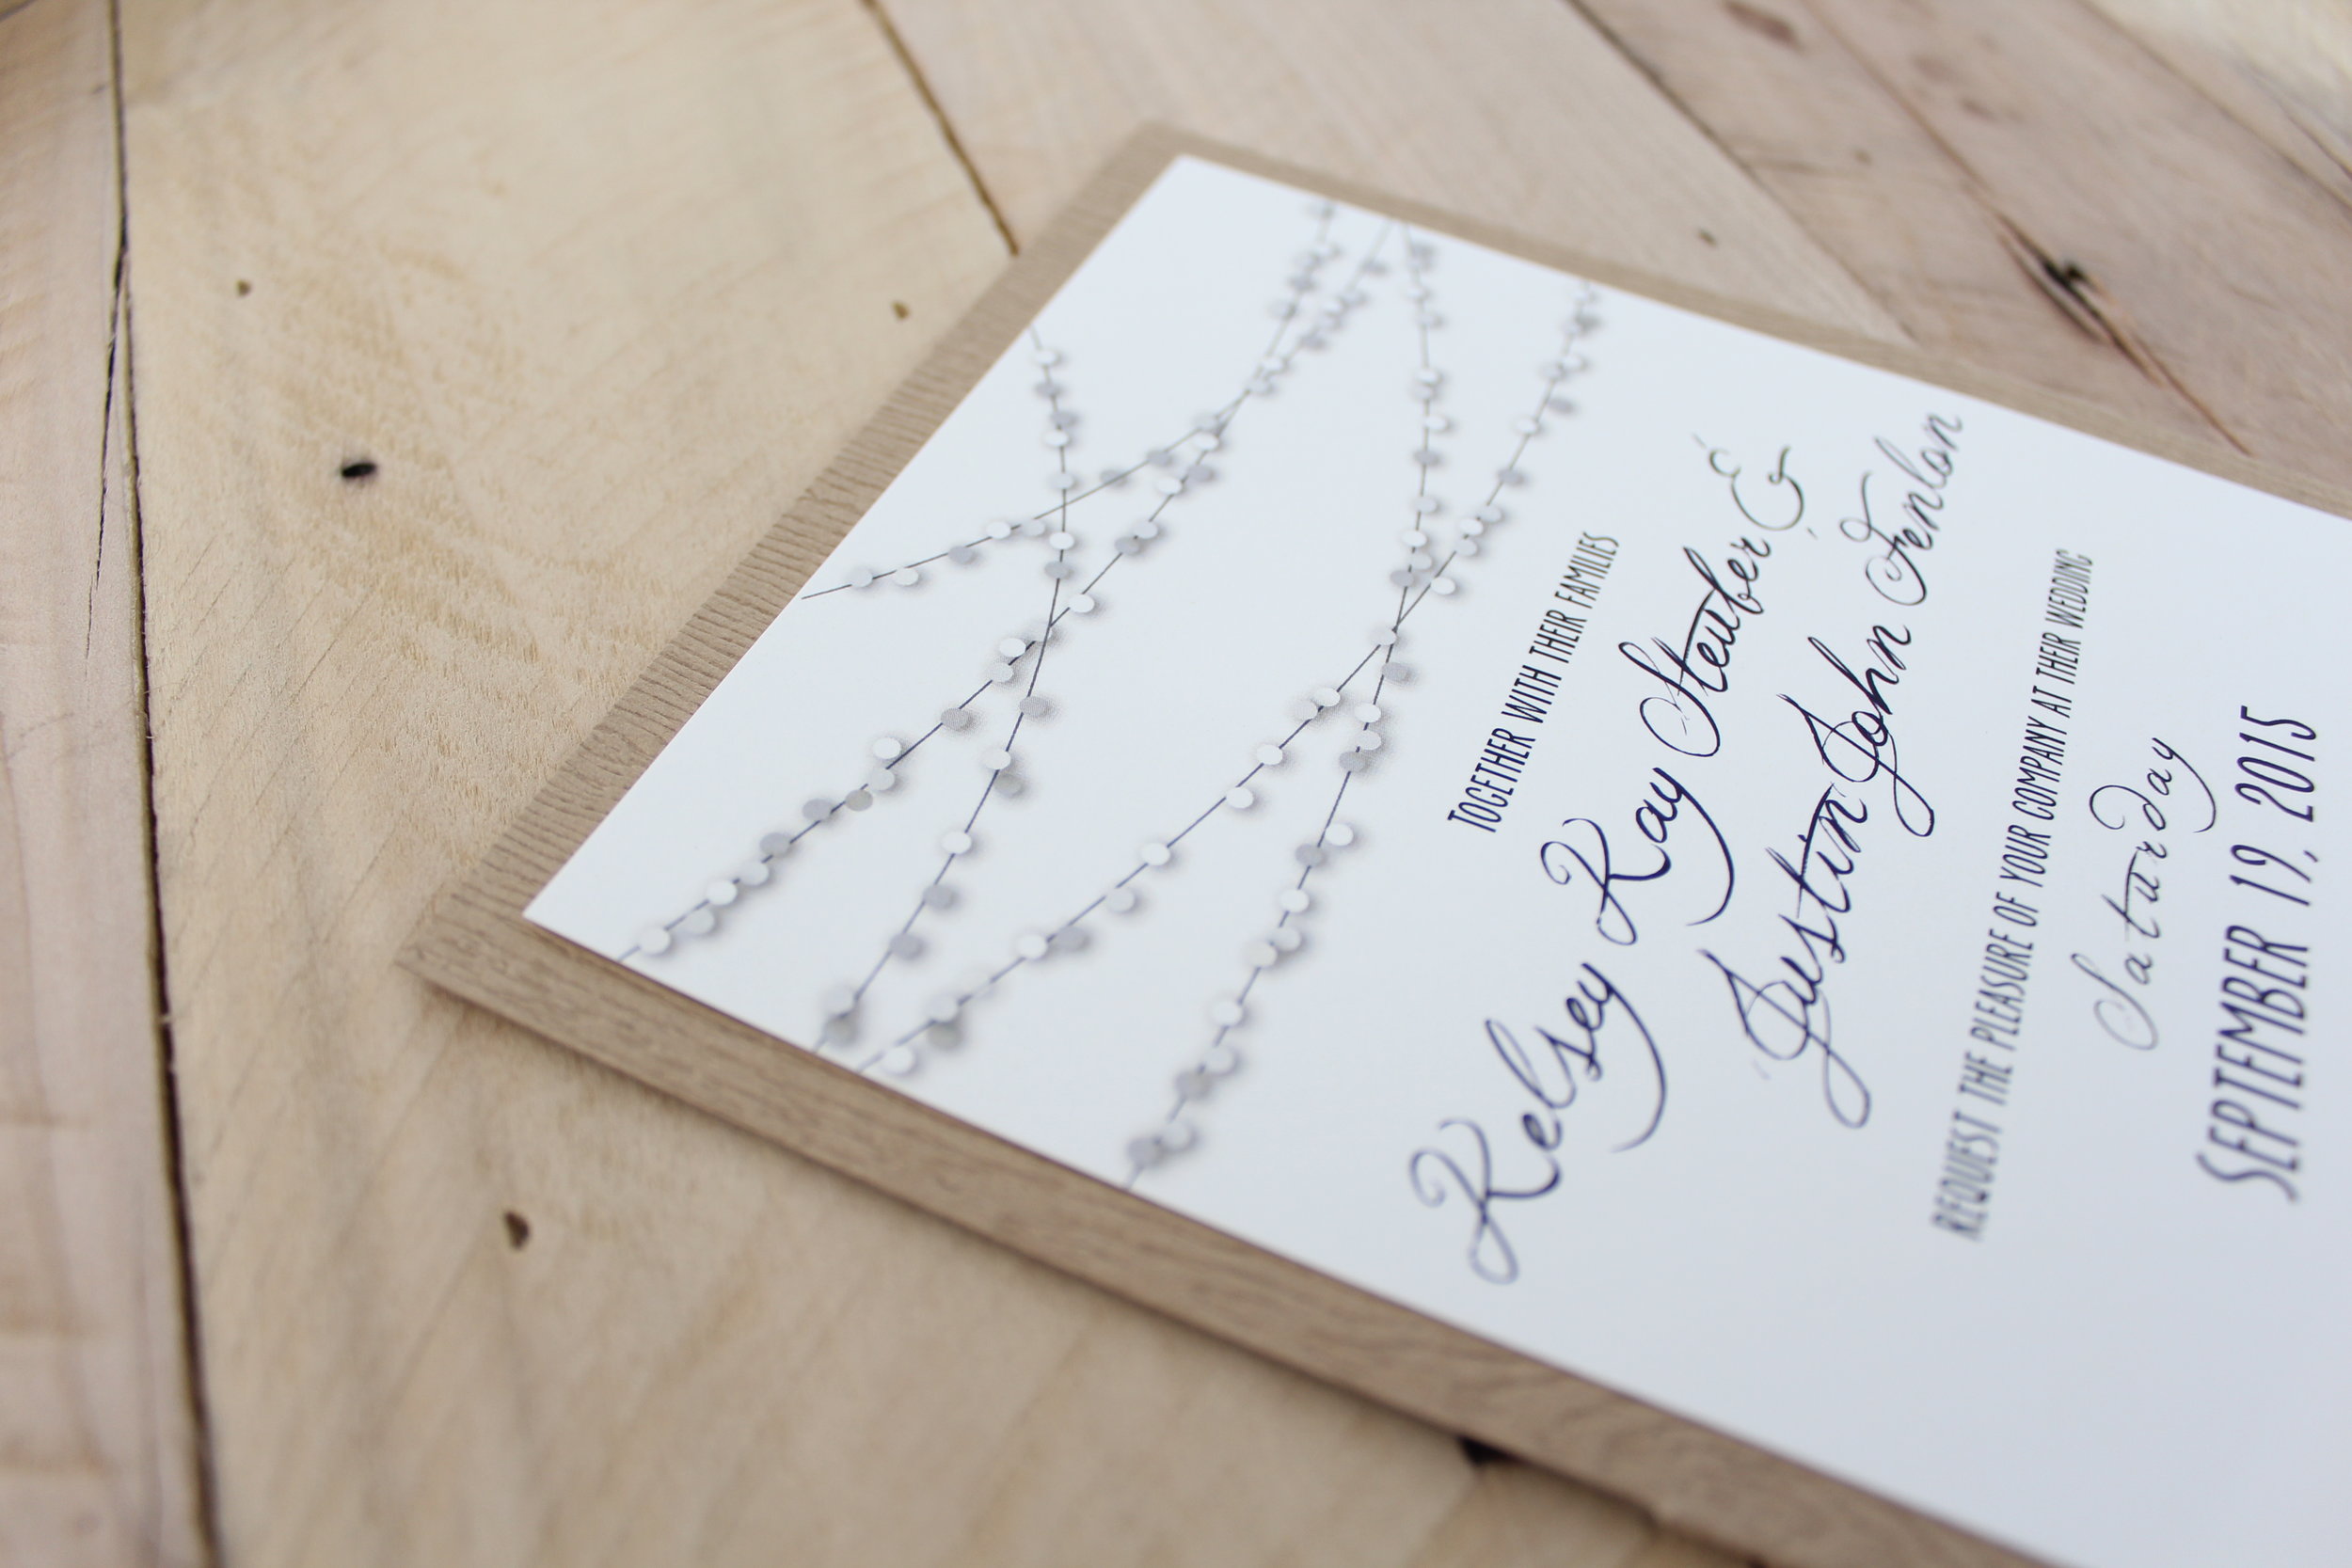 TOGETHER WITH THEIR FAMILIES
Kelsey Kay Steuber &
Justin John Fenlon
REQUEST THE PLEASURE OF YOUR COMPANY AT THEIR WEDDING
Saturday
SEPTEMBER 19, 2015